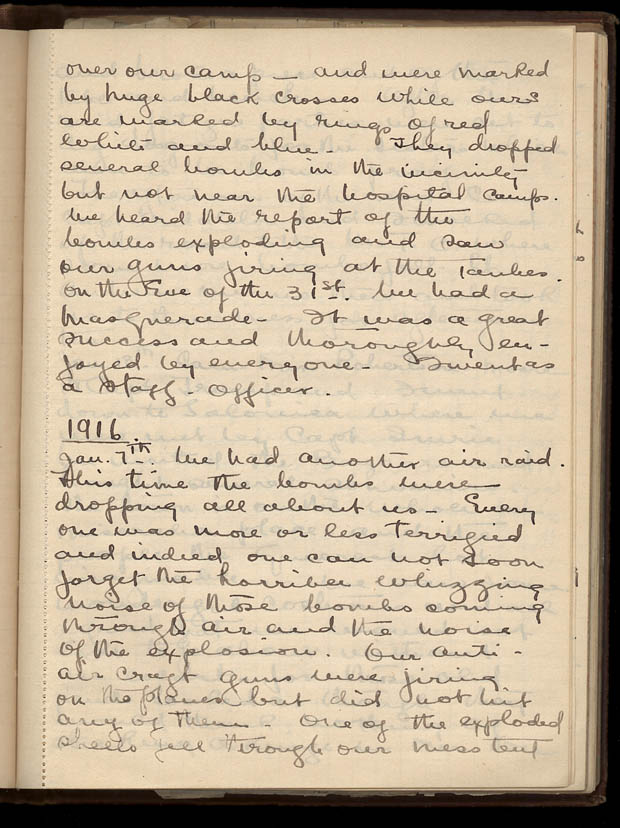 over our camp — and were marked
by huge black crosses while ours
are marked by rings of red
white and blue. They dropped
several bombs in the vicinity
but not near the hospital camps.
We heard the report of the
bombs exploding and saw
our guns firing at the Taubes.
On the Eve of the 31st. we had a
masquerade - It was a great
success and thoroughly en-
joyed by everyone - I went as
a Staff - Officer.
1916.
Jan. 7th. We had another air raid.
This time the bombs were
dropping all about us - Every
one was more or less terrified
and indeed one can not soon
forget the horrible whizzing
noise of those bombs coming
through air and the noise
of the explosion. Our anti-
air craft guns were firing
on the planes but did not hit
any of them - One of the exploded
shells fell through our mess tent